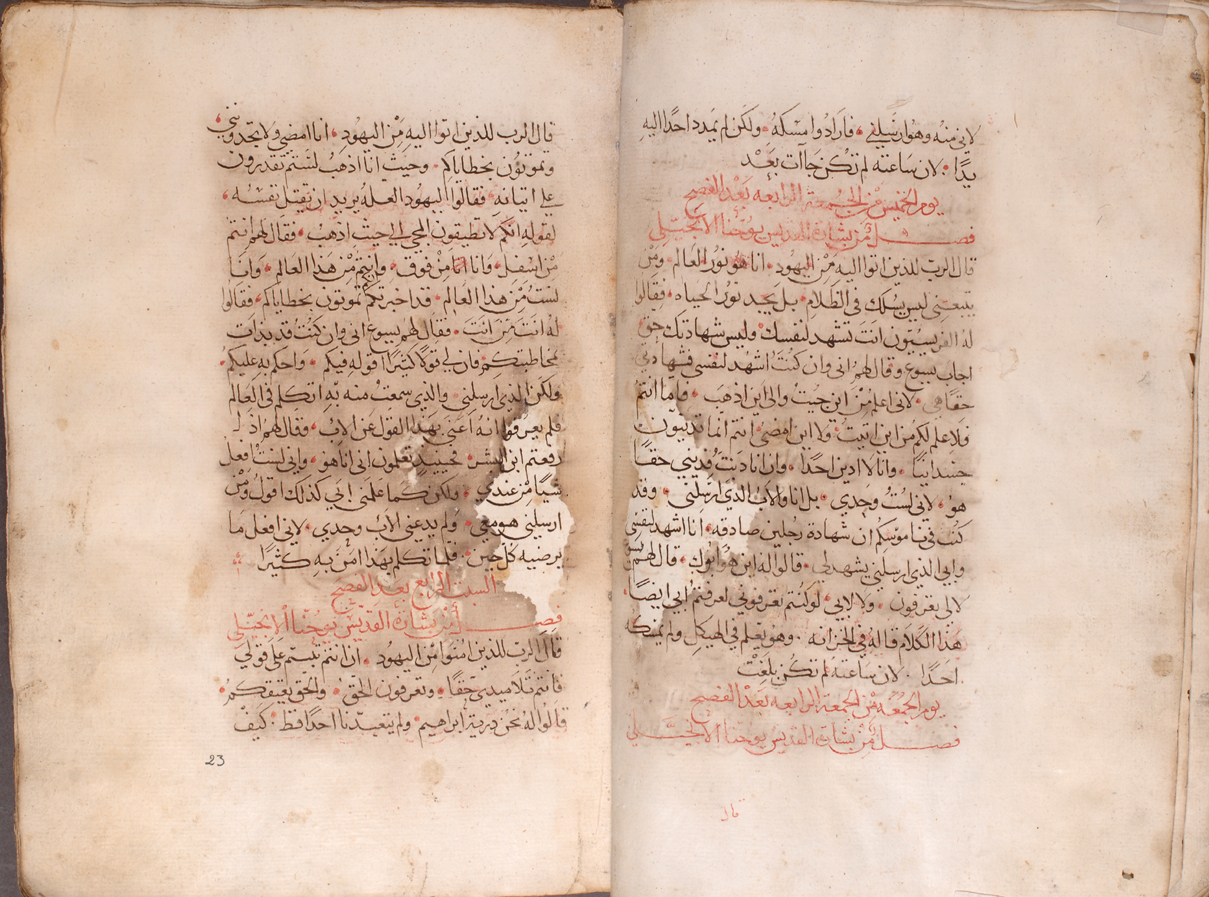 لاني منه وهو ارسلني • فارادوا مسكه • ولكن لم يمدد احدًا اليه
يدًا • لان ساعته لم تكن جاآت بعد
يوم الخميس من الجمعة الرابعه بعد الفصح
فصل من بشارة القديس يوحنا الانجيلي
قال الرب للذين اتوا اليه من اليهود • انا هو نور العالم • ومن
يتبعني ليس يسلك في الظلام • بل يجد نور الحياه • فقالوا
له الفريسيون انت تشهد لنفسك وليس شهادتك حق
اجاب يسوع وقال لهم اني وان كنت اشهد لنفسي فشهادتي
حقا هي • لاني اعلم من اين جيت والى اين اذهب • فاما انتم
فلا علم لكم من اين اتيت • ولا اين امضي انتم انما تدينون
جسدانيًا • وانا لا ادين احدًا • وان انا دنت فديني حقًا
هو • لاني لست وحدي • بل انا والاب الذي ارسلني • وقد
كتب في ناموسكم ان شهادة رجلين صادقه • انا اشهد لنفسي
وابي الذي ارسلني يشهد لي • قالوا له اين هو ابوك • قال لهم يسوع
لا لي تعرفون • ولا لابي • لو كنتم تعرفوني لعرفتم ابي ايضًا •
هذا الكلام قاله في الخزانه • وهو يعلم في الهيكل ولم يمسكه
احدًا • لان ساعته لم تكن بلغت
يوم الجمعه من الجمعة الرابعه بعد الفصح
فصل من بشارة القديس يوحنا الانجيلي
قال
قال الرب للذين اتوا اليه من اليهود • انا امضي ولا تجدوني •
وتموتون بخطاياكم • وحيث انا اذهب لستم تقدرون
على اتيانه • فقالوا اليهود العله يريد ان يقتل نفسه •
لقوله انكم لا تطيقون المجي الى حيث اذهب • فقال لهم انتم
من اسفل • وانا انا من فوق • وانتم من هذا العالم • وانا
لست من هذا العالم • قد اخبرتكم تموتون بخطاياكم • فقالوا
له انت من انت • فقال لهم يسوع اني وان كنت قد بدات
بمخاطبتكم • فان لي قولا كثيرًا اقوله فيكم • واحكم به عليكم •
ولكن الذي ارسلني والذي سمعت منه به اتكلم في العالم
فلم يعرفوا انه اعني بهذا القول عن الاب • وقال لهم اذا
رفعتم ابن البشر • فحينيد تعلمون اني انا هو • واني لست افعل
شيًا من عندي • ولكن كما علمني ابي كذلك اقول ومن
ارسلني هو معي • ولم يدعني الاب وحدي • لاني افعل ما
يرضيه كل حين • فلما تكلم بهذا امن به كثيرًا
السبت الرابع بعد الفصح
فصل من بشارة القديس يوحنا الانجيلي
قال الرب للذين امنوا من اليهود • ان انتم تبتم على قولي
فانتم تلاميدي حقًا • وتعرفون الحق • والحق يعتقكم •
قالوا له نحن درية ابراهيم • ولم يتعبدنا احدًا قط • كيف
23